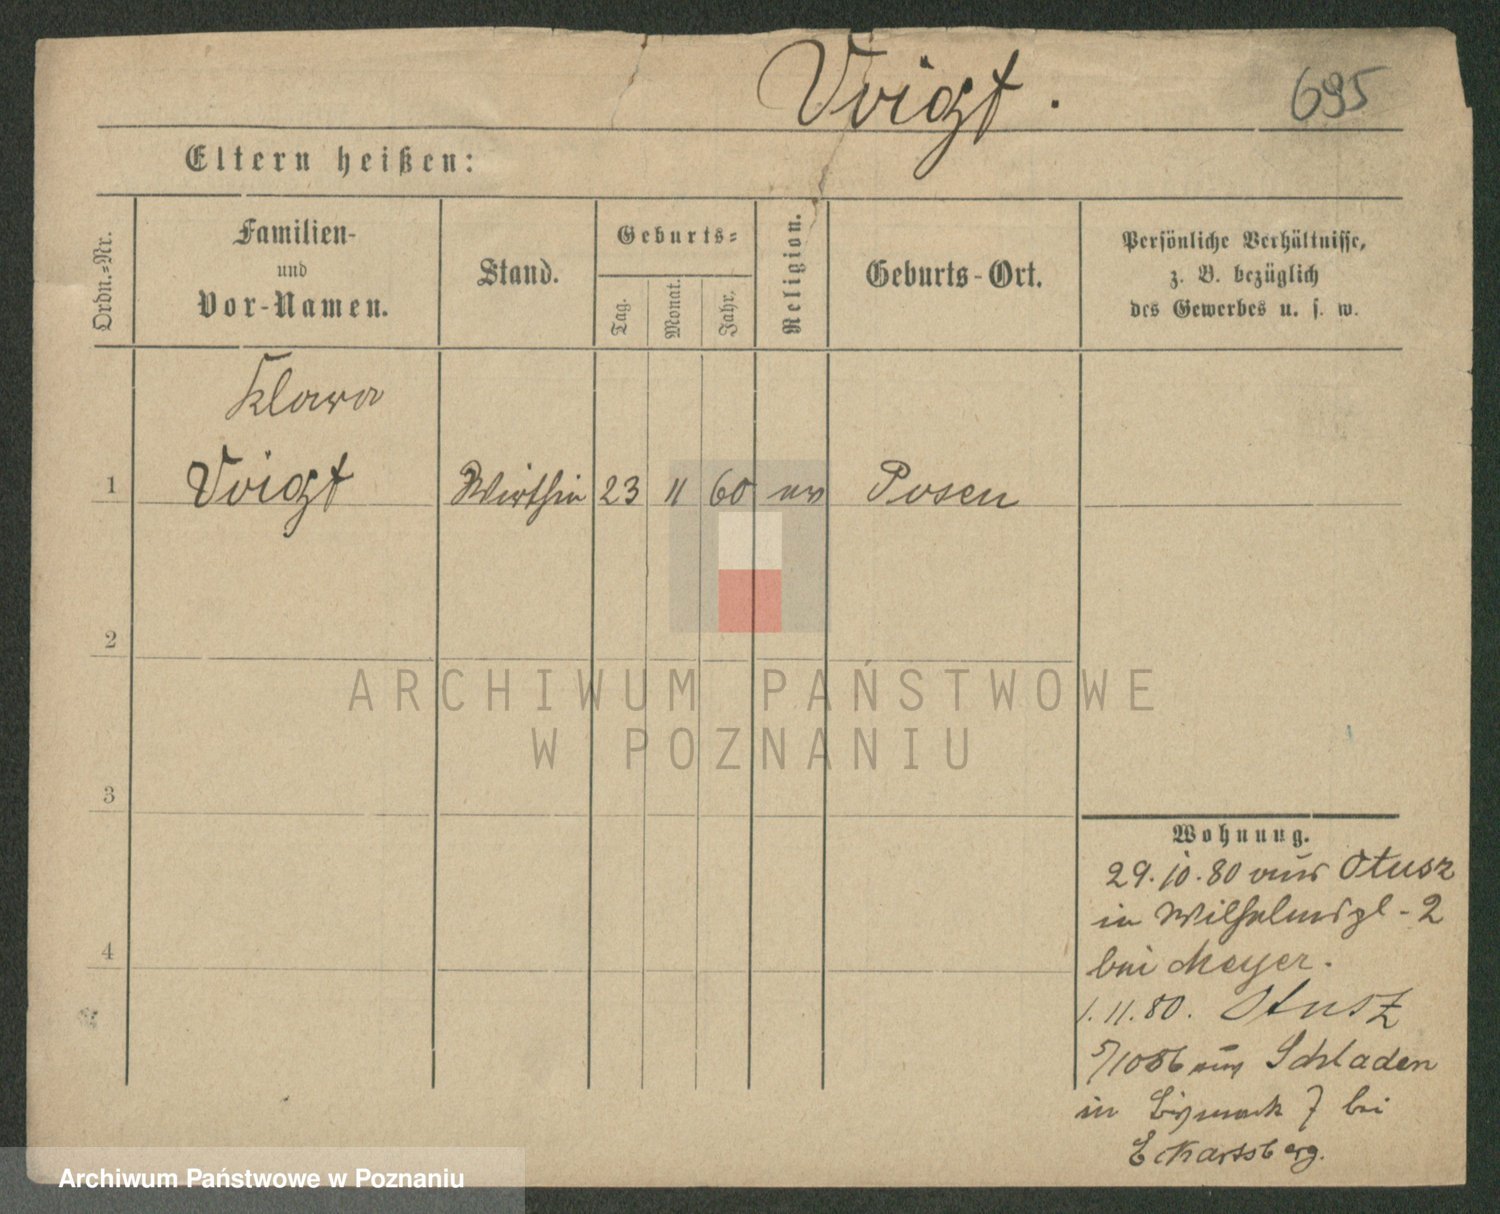 Voigt.
695
Eltern heißen:
Ordn.=Nr.
Familien-
und
Vor-Namen.
Stand.
Geburts=
Tag.
Monat.
Jahr.
Religion.
Geburts-Ort.
Persönliche Verhältnisse,
z. B. bezüglich
des Gewerbes u. s. w.
Klara
1 Voigt Wirthin 23 11 60 ev Posen
2
3
4
ARCHIWUM PAŃSTWOWE
W POZNANIU
Wohnung.
29.10.80 aus Otusz
in Wilhelmspl-2
bei Meyer.
1.11.80. Otusz
5/10 86 aus Schladen
in Bismark 7 bei
Eckartsberg.
Archiwum Państwowe w Poznaniu